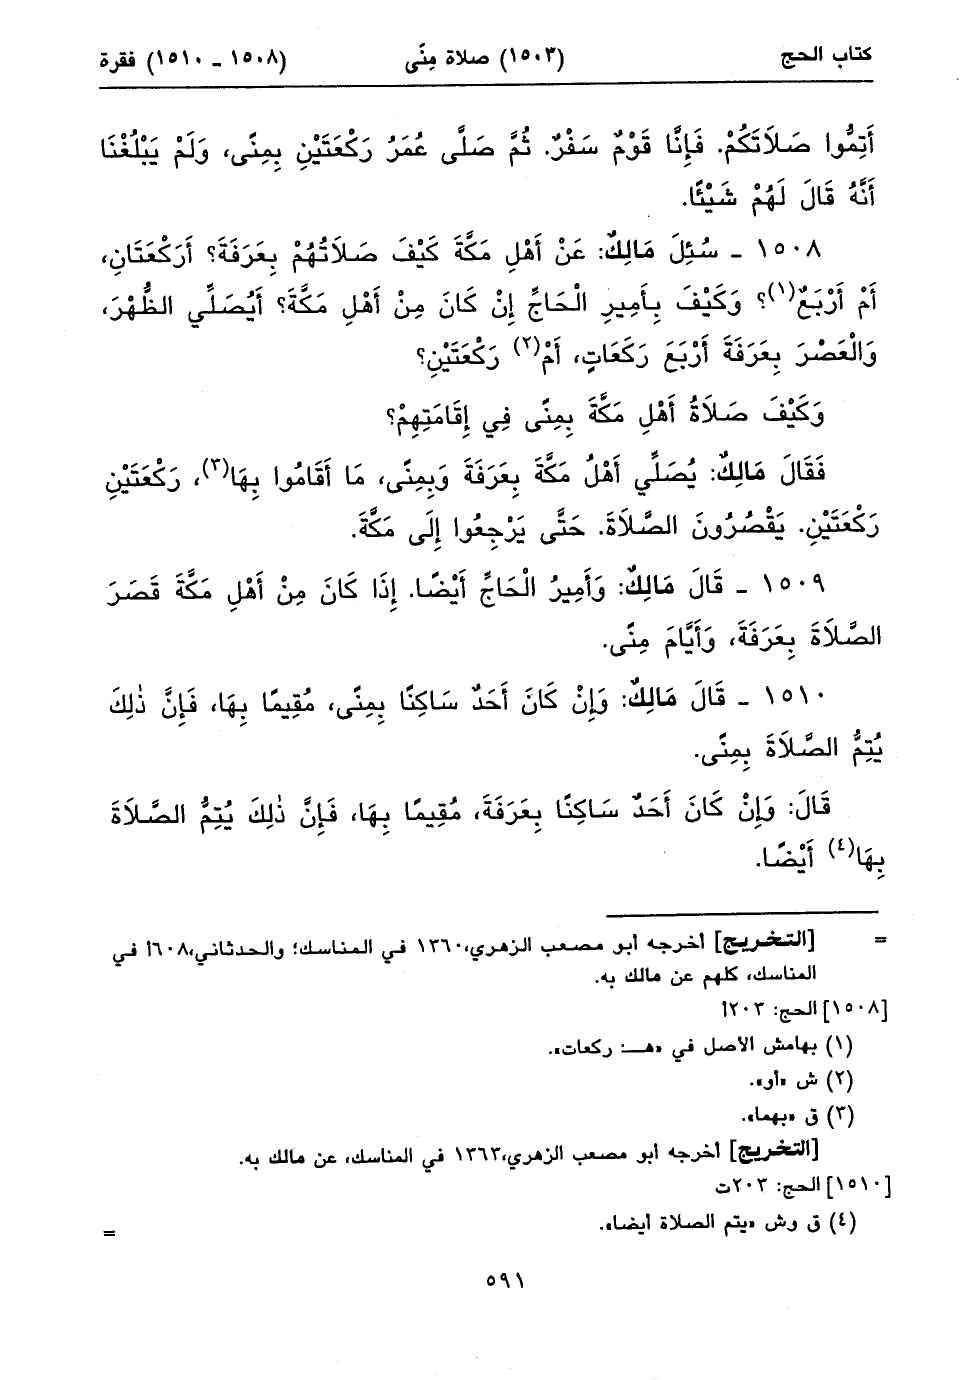 كتاب الحج (١٥٠٣) صلاة مِنًى (١٥٠٨ ـ ١٥١٠) فقرة
أَتِمُّوا صَلَاتَكُمْ. فَإِنَّا قَوْمٌ سَفْرٌ. ثُمَّ صَلَّى عُمَرُ رَكْعَتَيْنِ بِمِنًى، وَلَمْ يَبْلُغْنَا
أَنَّهُ قَالَ لَهُمْ شَيْئًا.
١٥٠٨ ـ سُئِلَ مَالِكٌ: عَنْ أَهْلِ مَكَّةَ كَيْفَ صَلَاتُهُمْ بِعَرَفَةَ؟ أَرَكْعَتَانِ،
أَمْ أَرْبَعٌ(١)؟ وَكَيْفَ بِأَمِيرِ الْحَاجِّ إِنْ كَانَ مِنْ أَهْلِ مَكَّةَ؟ أَيُصَلِّي الظُّهْرَ،
وَالْعَصْرَ بِعَرَفَةَ أَرْبَعَ رَكَعَاتٍ، أَمْ(٢) رَكْعَتَيْنِ؟
وَكَيْفَ صَلَاةُ أَهْلِ مَكَّةَ بِمِنًى فِي إِقَامَتِهِمْ؟
فَقَالَ مَالِكٌ: يُصَلِّي أَهْلُ مَكَّةَ بِعَرَفَةَ وَبِمِنًى، مَا أَقَامُوا بِهَا(٣)، رَكْعَتَيْنِ
رَكْعَتَيْنِ. يَقْصُرُونَ الصَّلَاةَ. حَتَّى يَرْجِعُوا إِلَى مَكَّةَ.
١٥٠٩ ـ قَالَ مَالِكٌ: وَأَمِيرُ الْحَاجِّ أَيْضًا. إِذَا كَانَ مِنْ أَهْلِ مَكَّةَ قَصَرَ
الصَّلَاةَ بِعَرَفَةَ، وَأَيَّامَ مِنًى.
١٥١٠ ـ قَالَ مَالِكٌ: وَإِنْ كَانَ أَحَدٌ سَاكِنًا بِمِنًى، مُقِيمًا بِهَا، فَإِنَّ ذٰلِكَ
يُتِمُّ الصَّلَاةَ بِمِنًى.
قَالَ: وَإِنْ كَانَ أَحَدٌ سَاكِنًا بِعَرَفَةَ، مُقِيمًا بِهَا، فَإِنَّ ذٰلِكَ يُتِمُّ الصَّلَاةَ
بِهَا(٤) أَيْضًا.
= [التخريج] أخرجه أبو مصعب الزهري،١٣٦٠ في المناسك؛ والحدثاني،٦٠٨أ في
المناسك، كلهم عن مالك به.
[١٥٠٨] الحج: ٢٠٣أ
(١) بهامش الأصل في «هـ: ركعات».
(٢) ش «أو».
(٣) ق «بهما».
[التخريج] أخرجه أبو مصعب الزهري،١٣٦٣ في المناسك، عن مالك به.
[١٥١٠] الحج: ٢٠٣ت
(٤) ق وش «يتم الصلاة أيضا».
=
٥٩١